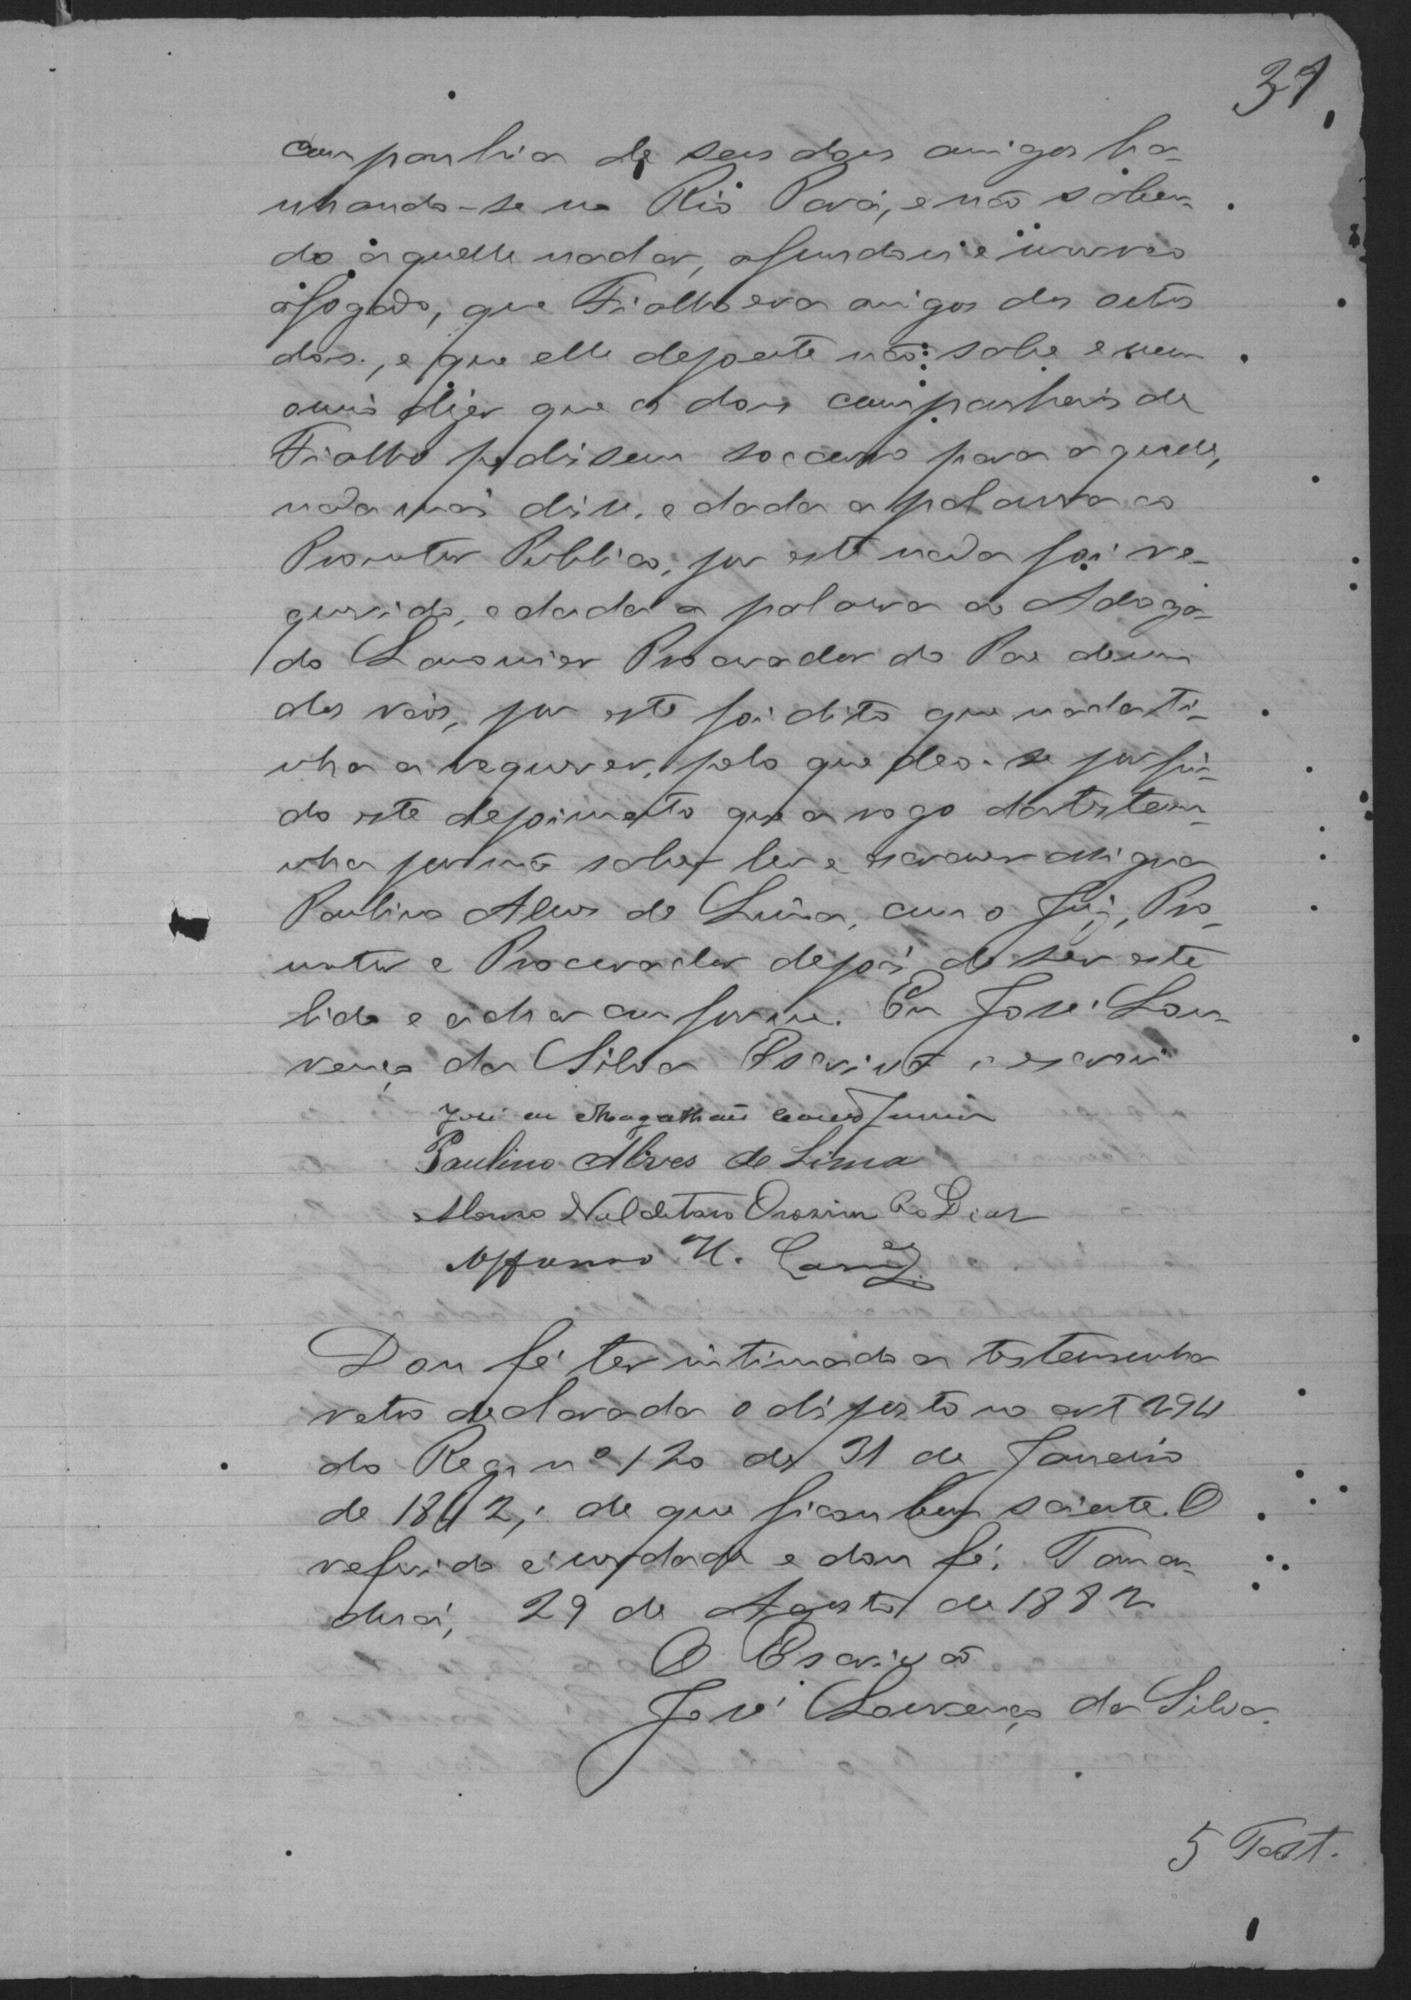 31
companhia de seus dous amigos ba-
nhando-se no Rio Pará, e não saben-
do aquelle nadar, afundou e morreo
afogado, que Fialho era amigos dos outos
dois, e que elle depoente não sabe e nem
ouvio dizer que os dous companheiros de
Fialho pedissem soccorro para aquelle,
nada mais disse, e dada a palavra ao
Promotor Publico, por este nada foi re-
querido, e dada a palavra ao Adoga-
do Procurador do Pae de um
dos reos, por este foi dito que nada ti-
nha a requerer, pelo que deo-se por fin-
do este depoimento que a rogo da testem-
unha por não saber ler e escrever assigna
Paulino Alves de Lima, com o Juiz, Pro-
motor e Procurador depois de ser este
lido e achar conforme. Eu José Lou-
renço da Silva Escrivão o escrevi
José de Magalhães Junior
Paulino Alves de Lima
Dias
Affonso H.
Dou fé ter intimado a testemunha
retro declarada o disposto no art 294
do Reg. nº 120 de 31 de Janeiro
de 1842; de que ficou bem sciente. O
referido é verdade e dou fé. Taman-
duá, 29 de Agosto de 1882
O Escrivão
José Lourenço da Silva.
5 Test.